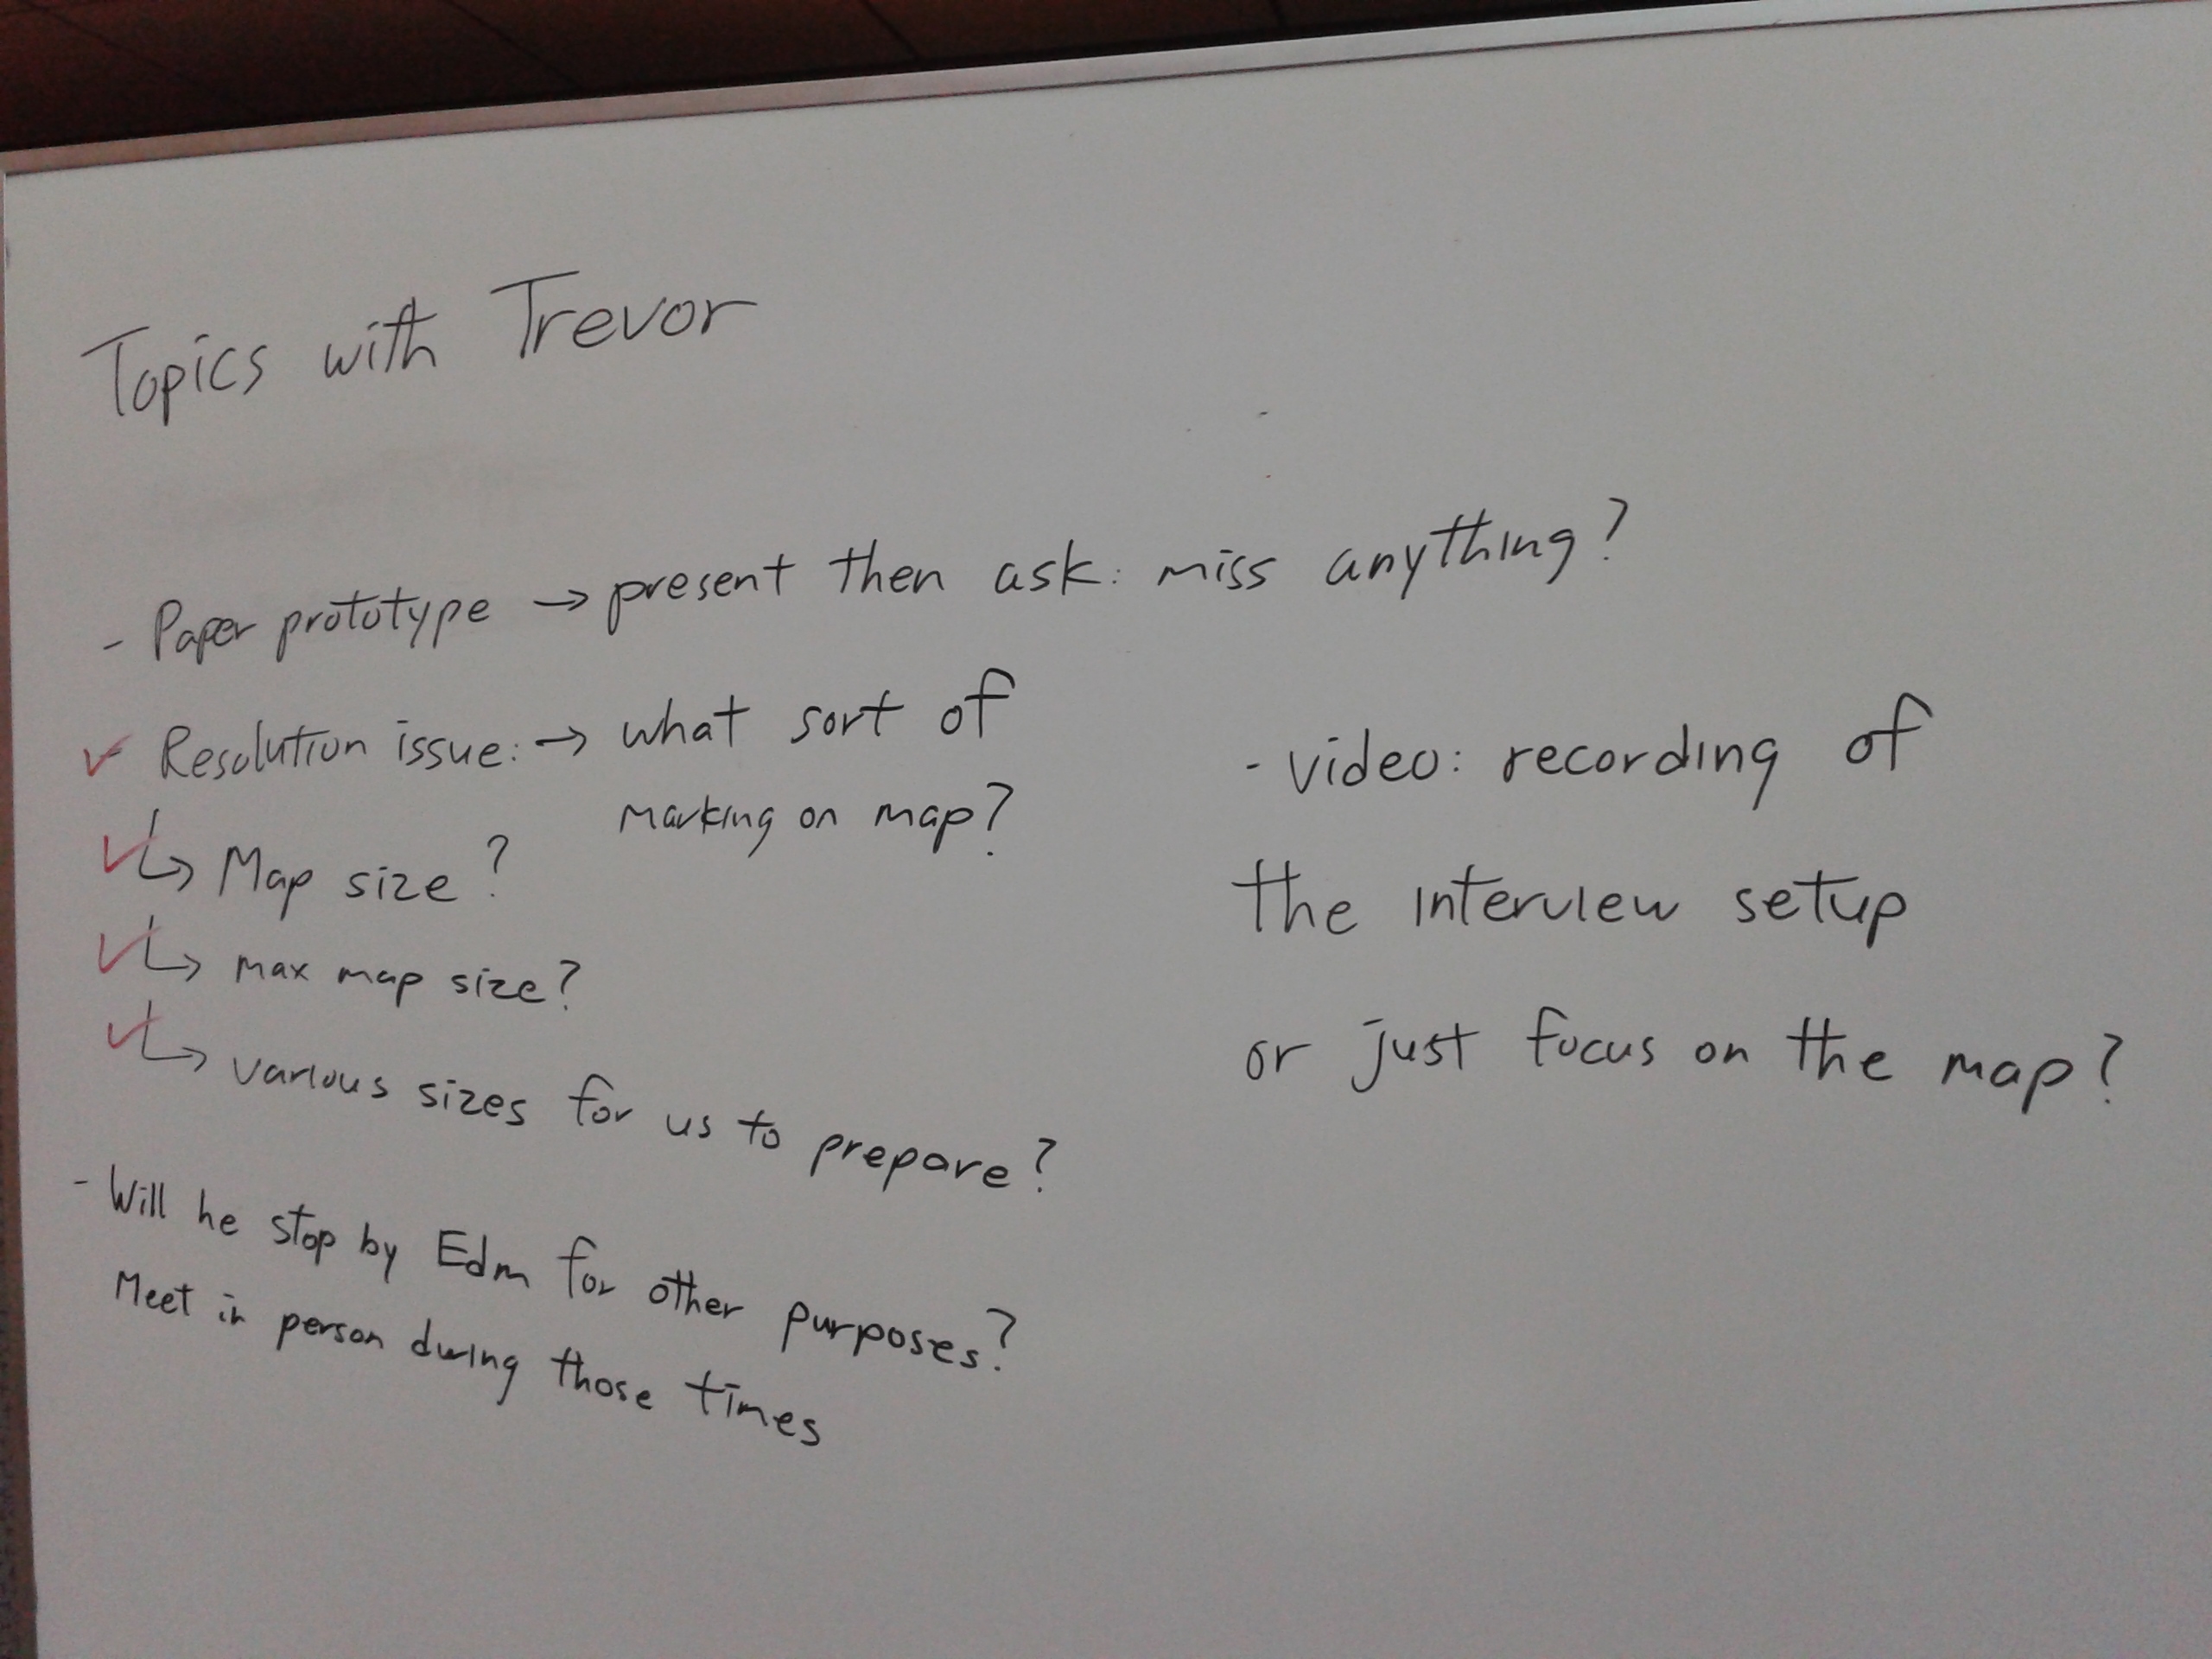 Topics with Trevor
- Paper prototype → present then ask: miss anything?
✓ Resolution issue: → what sort of
marking on map?
✓ ↳ Map size?
✓ ↳ max map size?
✓ ↳ various sizes for us to prepare?
- Will he stop by Edm for other purposes?
Meet in person during those times
- video: recording of
the interview setup
or just focus on the map?